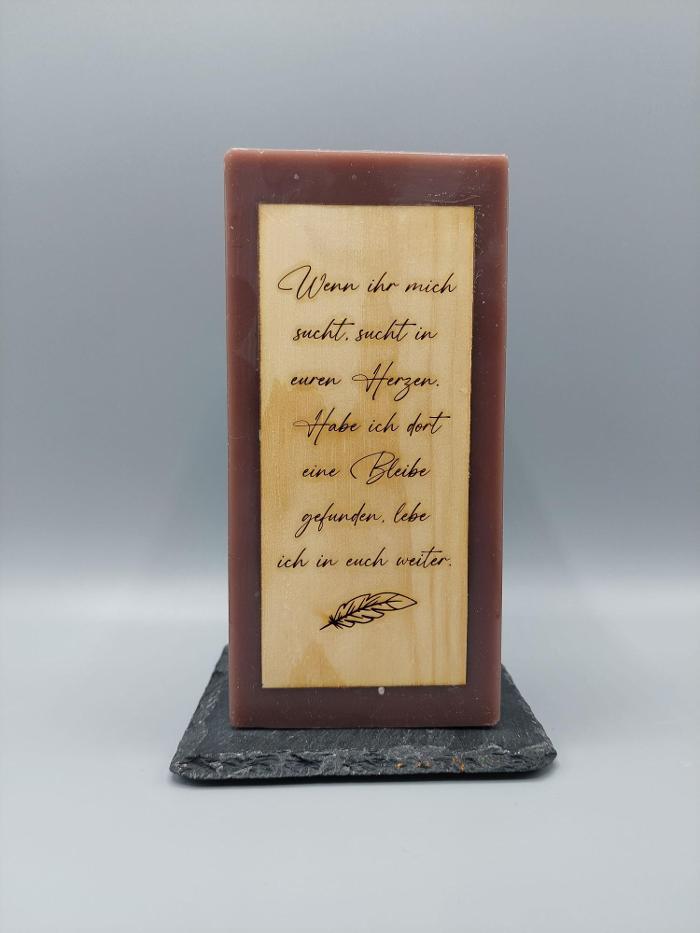 Wenn ihr mich
sucht, sucht in
euren Herzen.
Habe ich dort
eine Bleibe
gefunden, lebe
ich in euch weiter.